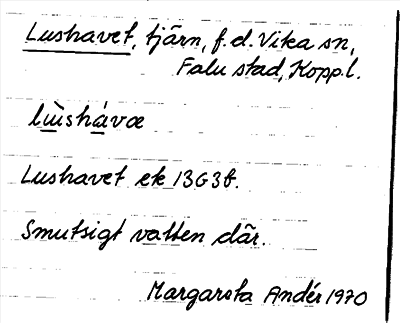 Lushavet, tjärn, f.d. Vika sn,
Falu stad, Koppl.
lùshávæ
Lushavet ek 13G3f.
Smutsigt vatten där.
Margareta Andér 1970